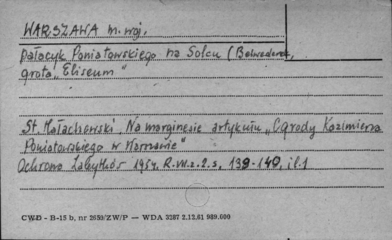 WARSZAWA m. woj.
pałacyk Poniatowskiego na Solcu (Belwederska,
grota "Eliseum"
St. Małachowski, Na marginesie artykułu "Ogrody Kazimierza
Poniatowskiego w Warszawie"
Ochrona Zabytków 1954, R. VII z. 2 s. 139-140, il. 1
CWD - B-15 b, nr 2659/ZW/P — WDA 3287 2.12.61 989.000